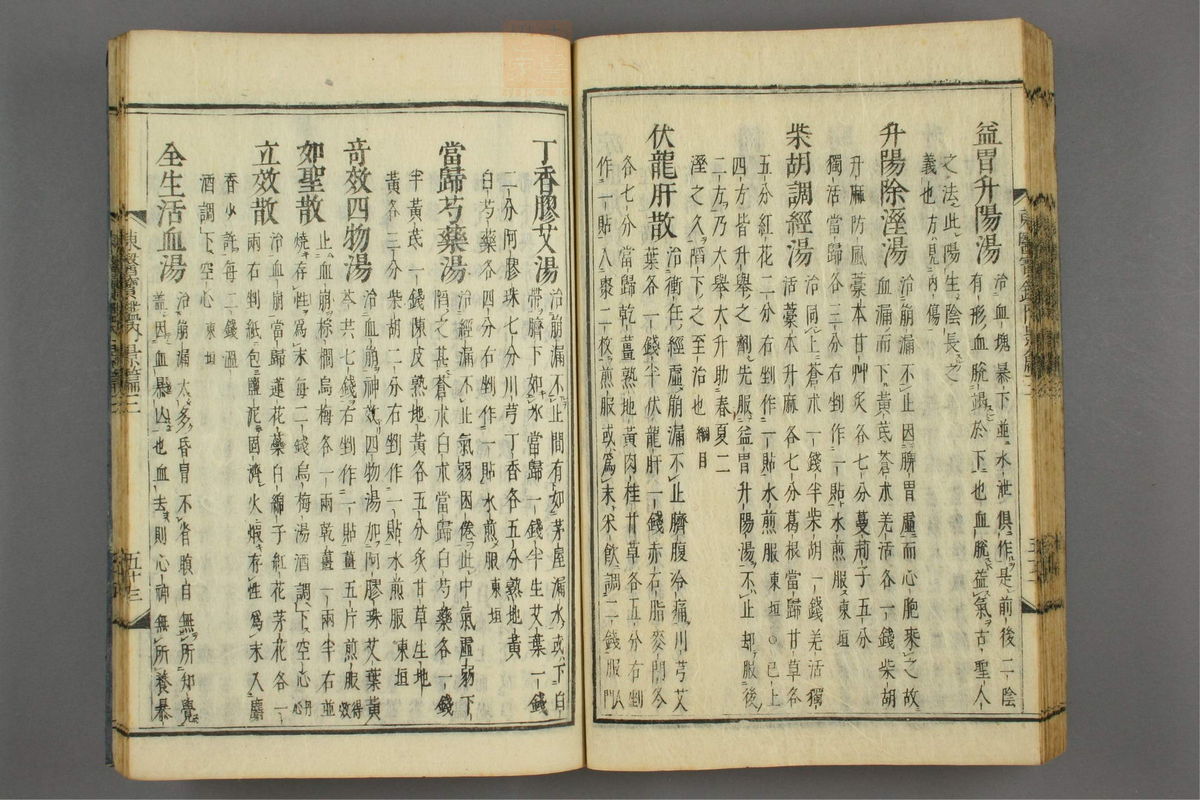 益胃升陽湯
治血塊暴下並水泄俱作是前後二陰
有形血脫竭於下也血脫益氣古聖人
之法此陽生陰長之
義也方見內傷
升陽除溼湯
治崩漏不止因脾胃虛而心胞乘之故
血漏而下黃芪蒼朮羌活各一錢柴胡
升麻防風藁本甘艸炙各七分蔓荊子五分
獨活當歸各三分右剉作一貼水煎服東垣
柴胡調經湯
治同上蒼朮一錢半柴胡一錢羌活獨
活藁本升麻各七分葛根當歸甘草各
五分紅花二分右剉作一貼水煎服東垣○已上
四方皆升舉之劑先服益胃升陽湯不止却服後
二方乃大舉大升助春夏二
溼之久陷下之至治也綱目
伏龍肝散
治衝任經虛崩漏不止臍腹冷痛川芎艾
葉各一錢半伏龍肝一錢赤石脂麥門冬
各七分當歸乾薑熟地黃肉桂甘草各五分右剉
作一貼入棗二枚煎服或爲末米飮調二錢服
丁香膠艾湯
治崩漏不止間有如茅屋漏水或下白
帶臍下如水當歸一錢半生艾葉一錢
二分阿膠珠七分川芎丁香各五分熟地黃
白芍藥各四分右剉作一貼水煎服東垣
當歸芍藥湯
治經漏不止氣弱因倦此中氣虛弱下
陷之甚蒼朮白朮當歸白芍藥各一錢
半黃芪一錢陳皮熟地黃各五分炙甘草生地
黃各三分柴胡二分右剉作一貼水煎服東垣
奇效四物湯
治血崩神效四物湯加阿膠珠艾葉黃
芩共七錢右剉作一貼薑五片煎服得效
如聖散
止血崩棕櫚烏梅各一兩乾薑一兩半右並
燒存性爲末每二錢烏梅湯酒調下空心丹心
立效散
治血崩當歸蓮花蘂白綿子紅花茅花各一
兩右剉紙包鹽泥固濟火煅存性爲末入麝
香少許每二錢溫
酒調下空心東垣
全生活血湯
治崩漏太多昏冒不省瞑目無所知覺
蓋因血暴亡也血去則心神無所養暴